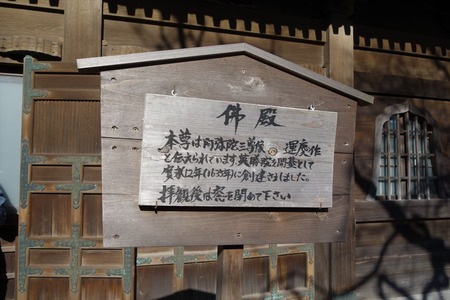 佛殿
本尊は阿弥陀三尊像 運慶作
と伝えられています 英勝院を開基として
寛永12年(1635年)に創建されました。
拝観後は扉を閉めて下さい